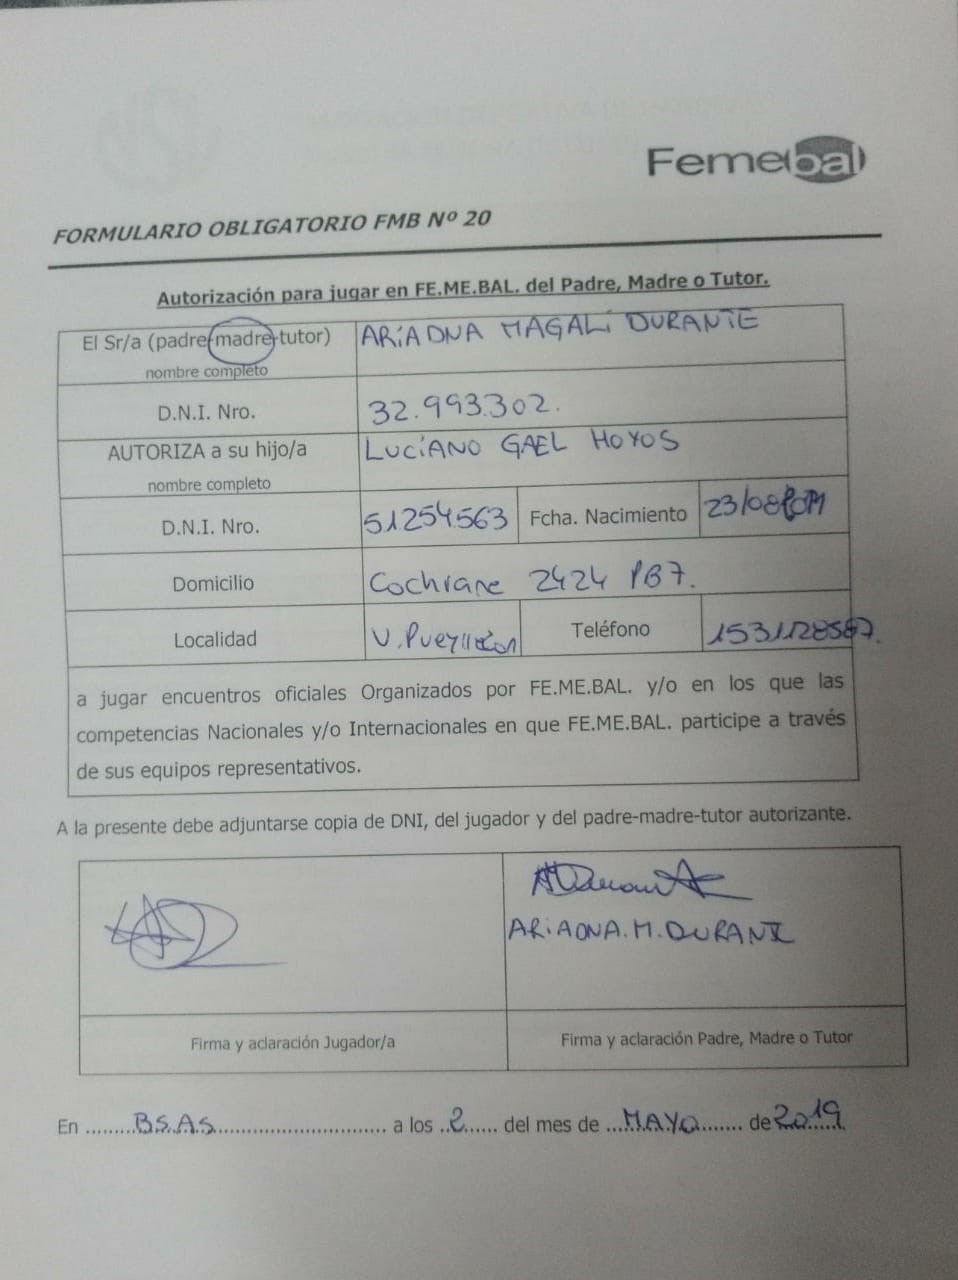 Femebal
FORMULARIO OBLIGATORIO FMB Nº 20
Autorización para jugar en FE.ME.BAL. del Padre, Madre o Tutor.
El Sr/a (padre-madre-tutor) ARiADNA MAGALí DURANTE
nombre completo
D.N.I. Nro. 32.993.302.
AUTORIZA a su hijo/a LUCíANO GAEL HOYOS
nombre completo
D.N.I. Nro. 51254.563 Fcha. Nacimiento 23/08/2011
Domicilio Cochrane 2424 PB7.
Localidad V. Pueyrredón Teléfono
a jugar encuentros oficiales Organizados por FE.ME.BAL. y/o en los que las
competencias Nacionales y/o Internacionales en que FE.ME.BAL. participe a través
de sus equipos representativos.
A la presente debe adjuntarse copia de DNI, del jugador y del padre-madre-tutor autorizante.
ARiADNA.M.DURANTE
Firma y aclaración Jugador/a Firma y aclaración Padre, Madre o Tutor
En ........BS.AS............................. a los ..2...... del mes de ....MAYO....... de 2019